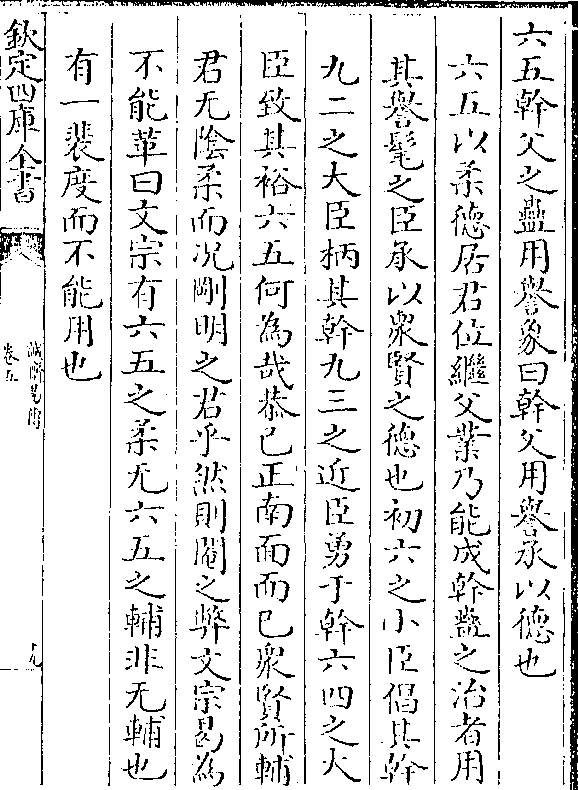 六五幹父之蠱用譽象曰幹父用譽承以德也
六五以柔德居君位繼父業乃能成幹蠱之治者用
其譽髦之臣承以衆賢之德也初六之小臣倡其幹
九二之大臣柄其幹九三之近臣勇于幹六四之大
臣致其裕六五何為哉恭已正南面而已衆賢所輔
君无陰柔而况剛明之君乎然則閹之弊文宗曷為
不能革曰文宗有六五之柔无六五之輔非无輔也
有一裴度而不能用也
欽定四庫全書
誠齋易傳
卷五
十九